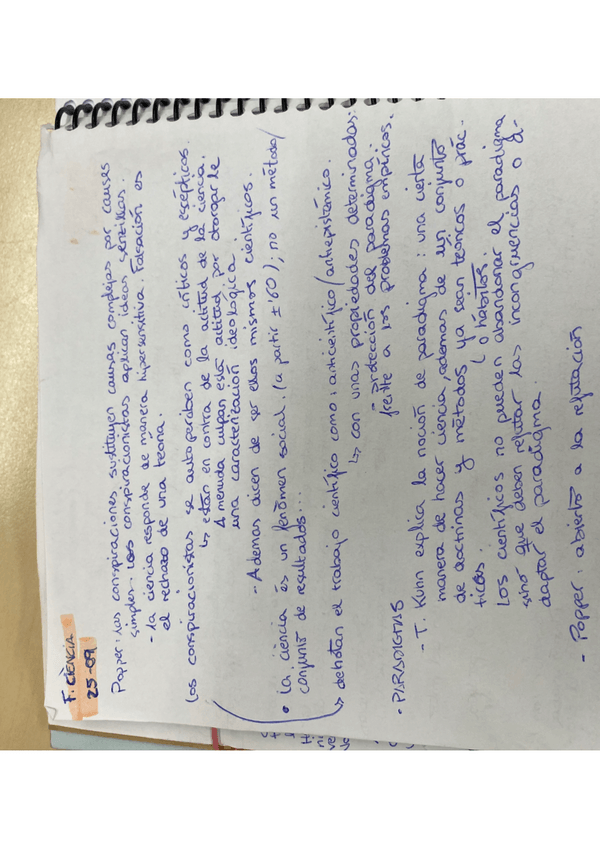 F. CIÈNCIA
25-09
Popper: Las conspiraciones sustituyen causas complejas por causas
simples. Los conspiracionistas aplican ideas sencillas.
- la ciencia responde de manera hipersensitiva. Falsación es
el rechazo de una teoría.
Los conspiracionistas se autoperciben como críticos y escépticos.
↳ están en contra de la actitud de la ciencia.
A menudo culpan esta actitud por otorgarle
una caracterización ideológica
- Ademas dicen de ser ellos mismos científicos.
• La ciència es un fenómen social. (a partir ± 60); no un método/
conjunto de resultados...
↳ delimitan el trabajo científico como: anticientífico/antiepistémico.
↳ con unas propiedades determinadas:
- protección del paradigma
frente a los problemas empíricos.
• PARADIGMAS
- T. Kuhn explica la noción de paradigma: una cierta
manera de hacer ciencia, ademas de un conjunto
de doctrinas y métodos ya sean teóricos o prác-
ticos. ( o hábitos.
Los científicos no pueden abandonar el paradigma
sino que deben refutar las incongruencias o a-
daptar el paradigma.
- Popper: abierto a la refutación